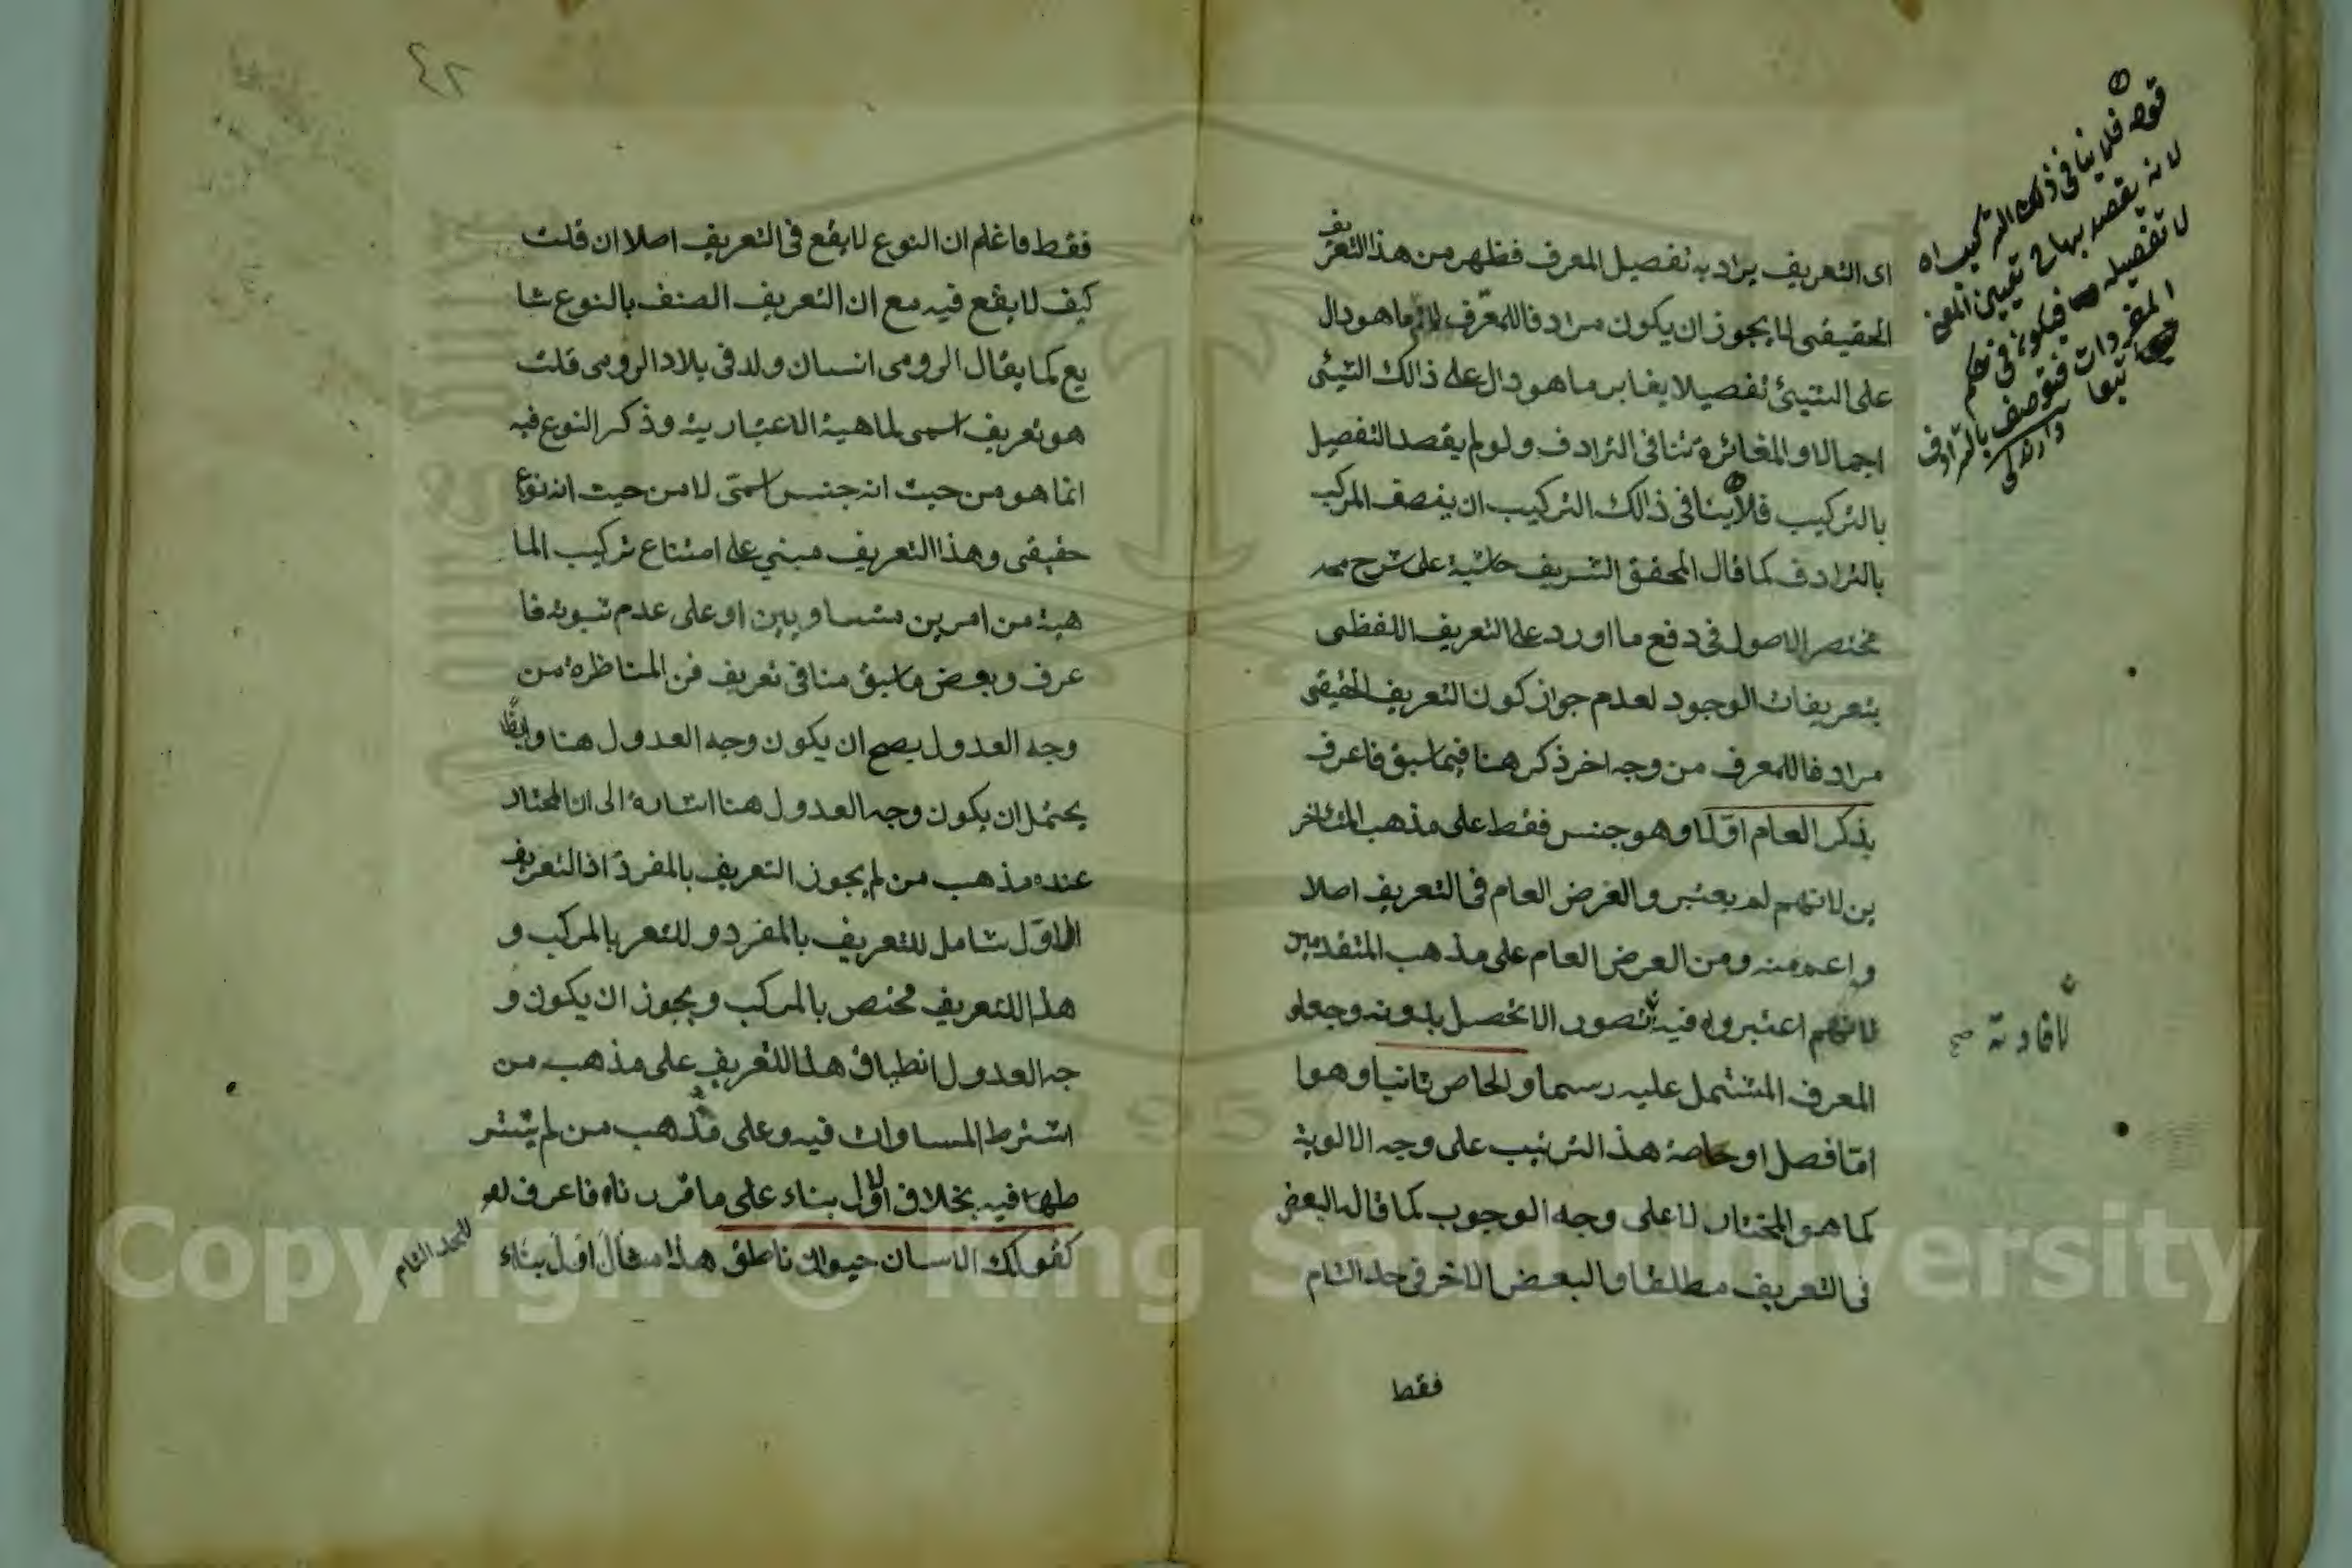 اى التعريف يراد به تفصيل المعرف فظهر من هذا التعريف
الحقيقى لا يجوز ان يكون مرادفا للمعرّف لان ما هو دال
على الشيئ تفصيلا يغاير ما هو دال على ذالك الشيئ
اجمالا والمغائرة تنافى الترادف ولو لم يقصد التفصيل
بالتركيب فلا ينافى ذالك التركيب ان يتصف المركب
بالترادف كما قال المحقق الشريف حاشية على شرح
مختصر الاصول فى دفع ما اورد على التعريف اللفظى
بتعريفات الوجود لعدم جواز كون التعريف الحقيقى
مرادفا للمعرف من وجه اخر ذكر هنا فيما سبق فاعرف
يذكر العام اوّلا وهو جنس فقط على مذهب المتاخر
ين لانهم لم يعتبر والغرض العام فى التعريف اصلا
واعم منه ومن العرض العام على مذهب المتقدمين
لانهم اعتبروه فيه لتصور الا تحصل بدونه وجعلو
المعرف المشتمل عليه رسما والخاص ثانيا وهوا
امّا فصل او خاصة هذ الترتيب على وجه الالوية
كما هو المختار لا على وجه الوجوب كما قاله البعض
فى التعريف مطلقا والبعض الاخر فى حد التام
فقط
قوله فلا ينافى ذلك التركيب اه
لانه يقصد بها ح تعيين المعنى
لا تفصيله فيكون فى حكم
المفردات فتوصف بالترادف
تبعا
لافادته صح
٤٢
فقط فاعلم ان النوع لا يقع فى التعريف اصلا ان قلت
كيف لا يقع فيه مع ان التعريف الصنف بالنوع شا
يع كما يقال الرومى انسان ولد فى بلاد الرومى قلت
هو تعريف اسمى لماهية الاعتبارية وذكر النوع فيه
انما هو من حيث انه جنس اسمّى لا من حيث انه نوع
حقيقى وهذا التعريف مبني على امتناع تركيب الما
هية من امرين متساويين او على عدم ثبوته فا
عرف وبعض ما سبق منا فى تعريف فن المناظرة من
وجه العدول يصح ان يكون وجه العدول هنا وايضًا
يحتمل ان يكون وجه العدول هنا اشارة الى ان المختار
عنده مذهب من لم يجوز التعريف بالمفرد اذ التعريف
الاوّل شامل للتعريف بالمفرد و للتعر بالمركب و
هذا التعريف مختص بالمركب ويجوز ان يكون و
جه العدول انطباق هذا التعريف على مذهب من
اشترط المساوات فيه وعلى مذهب من لم يشتر
طها فيه بخلاف الاوّل بناء على ما قررناه فاعرف
كقولك الانسان حيوان ناطق هذا مثال اوّل بناء
للحد التام
Copyright © King Saud University